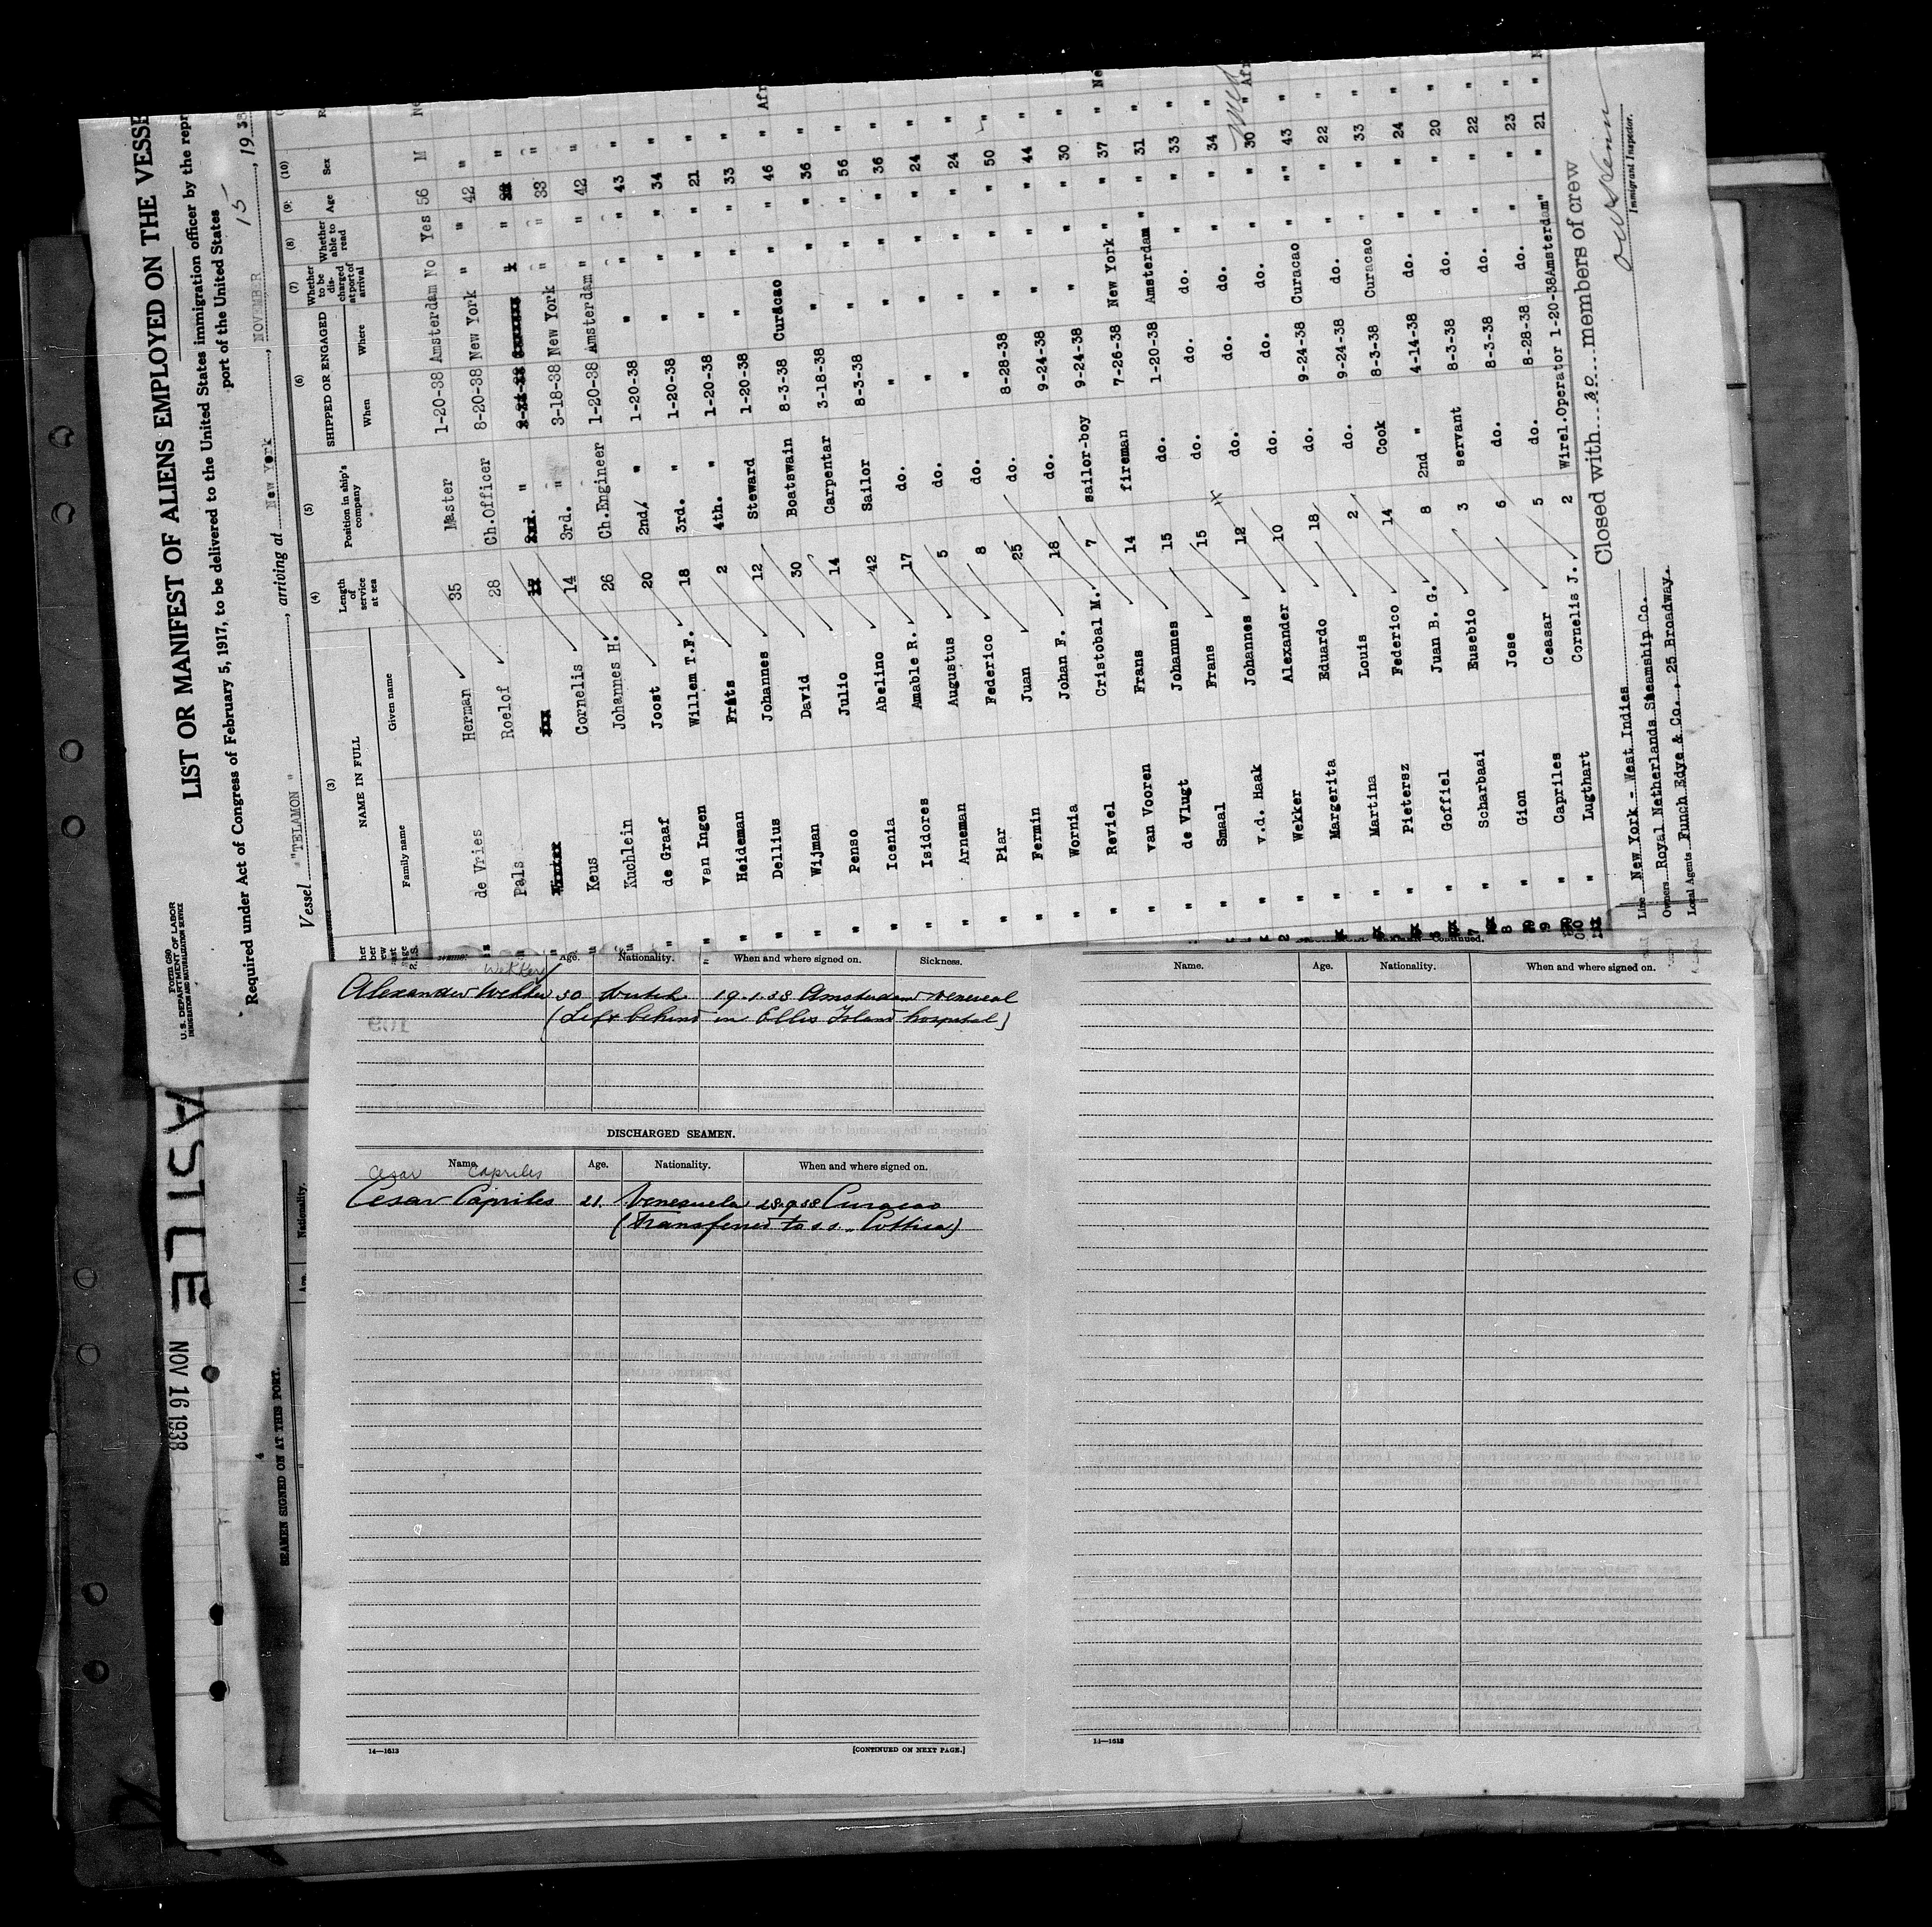 Form 689
U. S. DEPARTMENT OF LABOR
IMMIGRATION AND NATURALIZATION SERVICE
LIST OR MANIFEST OF ALIENS EMPLOYED ON THE VESSE
Required under Act of Congress of February 5, 1917, to be delivered to the United States immigration officer by the repr
port of the United States
Vessel "TELAMON", arriving at New York, NOVEMBER 15, 1938
(3) (4) (5) (6) (7) (8) (9) (10)
NAME IN FULL Length of service at sea Position in ship's company SHIPPED OR ENGAGED Whether to be discharged at port of arrival Whether able to read Age Sex
Family name Given name When Where
de Vries Herman 35 Master 1-20-38 Amsterdam No Yes 56 M
" Pals Roelof 28 Ch.Officer 8-20-38 New York " " 42 "
" Keus Cornelis 14 3rd. " 3-18-38 New York " " 33 "
" Kuchlein Johannes H. 26 Ch.Engineer 1-20-38 Amsterdam " " 42 "
" de Graaf Joost 20 2nd. " 1-20-38 " " 43 "
" van Ingen Willem T.F. 18 3rd. " 1-20-38 " " 34 "
" Heideman Frits 2 4th. " 1-20-38 " " 21 "
" Dellius Johannes 12 Steward 1-20-38 " " 33 "
" Wijman David 30 Boatswain 8-3-38 Curacao " 46 "
" Penso Julio 14 Carpentar 3-18-38 " " 36 "
" Icenia Abelino 42 Sailor 8-3-38 " " 56 "
" Isidores Amable R. 17 do. " " " 36 "
" Arneman Augustus 5 do. " " " 24 "
" Piar Federico 8 do. " " " 24 "
" Fermin Juan 25 do. 8-28-38 " " 50 "
" Wornia Johan F. 18 do. 9-24-38 " " 44 "
" Reviel Cristobal M. 7 sailor-boy 9-24-38 " " 30 "
" van Vooren Frans 14 fireman 7-26-38 New York " 37 "
" de Vlugt Johannes 15 do. 1-20-38 Amsterdam " 31 "
" Smaal Frans 15 do. do. do. " 33 "
" v.d. Haak Johannes 12 do. do. do. " 34 "
" Wekker Alexander 10 do. do. do. " 30 "
" Margerita Eduardo 18 do. 9-24-38 Curacao " 43 "
" Martina Louis 2 do. 9-24-38 do. " 22 "
" Pietersz Federico 14 Cook 8-3-38 Curacao " 33 "
" Goffiel Juan B. G. 8 2nd " 4-14-38 do. " 24 "
" Scharbaai Eusebio 3 servant 8-3-38 do. " 20 "
" Gion Jose 6 do. 8-3-38 do. " 22 "
" Capriles Ceasar 5 do. 8-28-38 do. " 23 "
" Lugthart Cornelis J. 2 Wirel.Operator 1-20-38 Amsterdam " 21 "
Closed with 30 members of crew
Line New York - West Indies
Owners Royal Netherlands Steamship Co.
Local Agents Funch Edye & Co., 25 Broadway.
Immigrant Inspector.
Age. Nationality. When and where signed on. Sickness.
Wekker
Alexander Wekker 30 Dutch 19-1-38 Amsterdam Venereal
(Left behind in Ellis Island hospital)
DISCHARGED SEAMEN.
Name. Age. Nationality. When and where signed on.
Cesar Capriles
Cesar Capriles 21. Venezuela 28-9-38 Curacao
(Transferred to s.s. Cottica)
14—1613
[CONTINUED ON NEXT PAGE.]
Continued.
Name. Age. Nationality. When and where signed on.
14—1613
ASTLE NOV 16 1938
SEAMEN SIGNED ON AT THIS PORT.
Nationality.